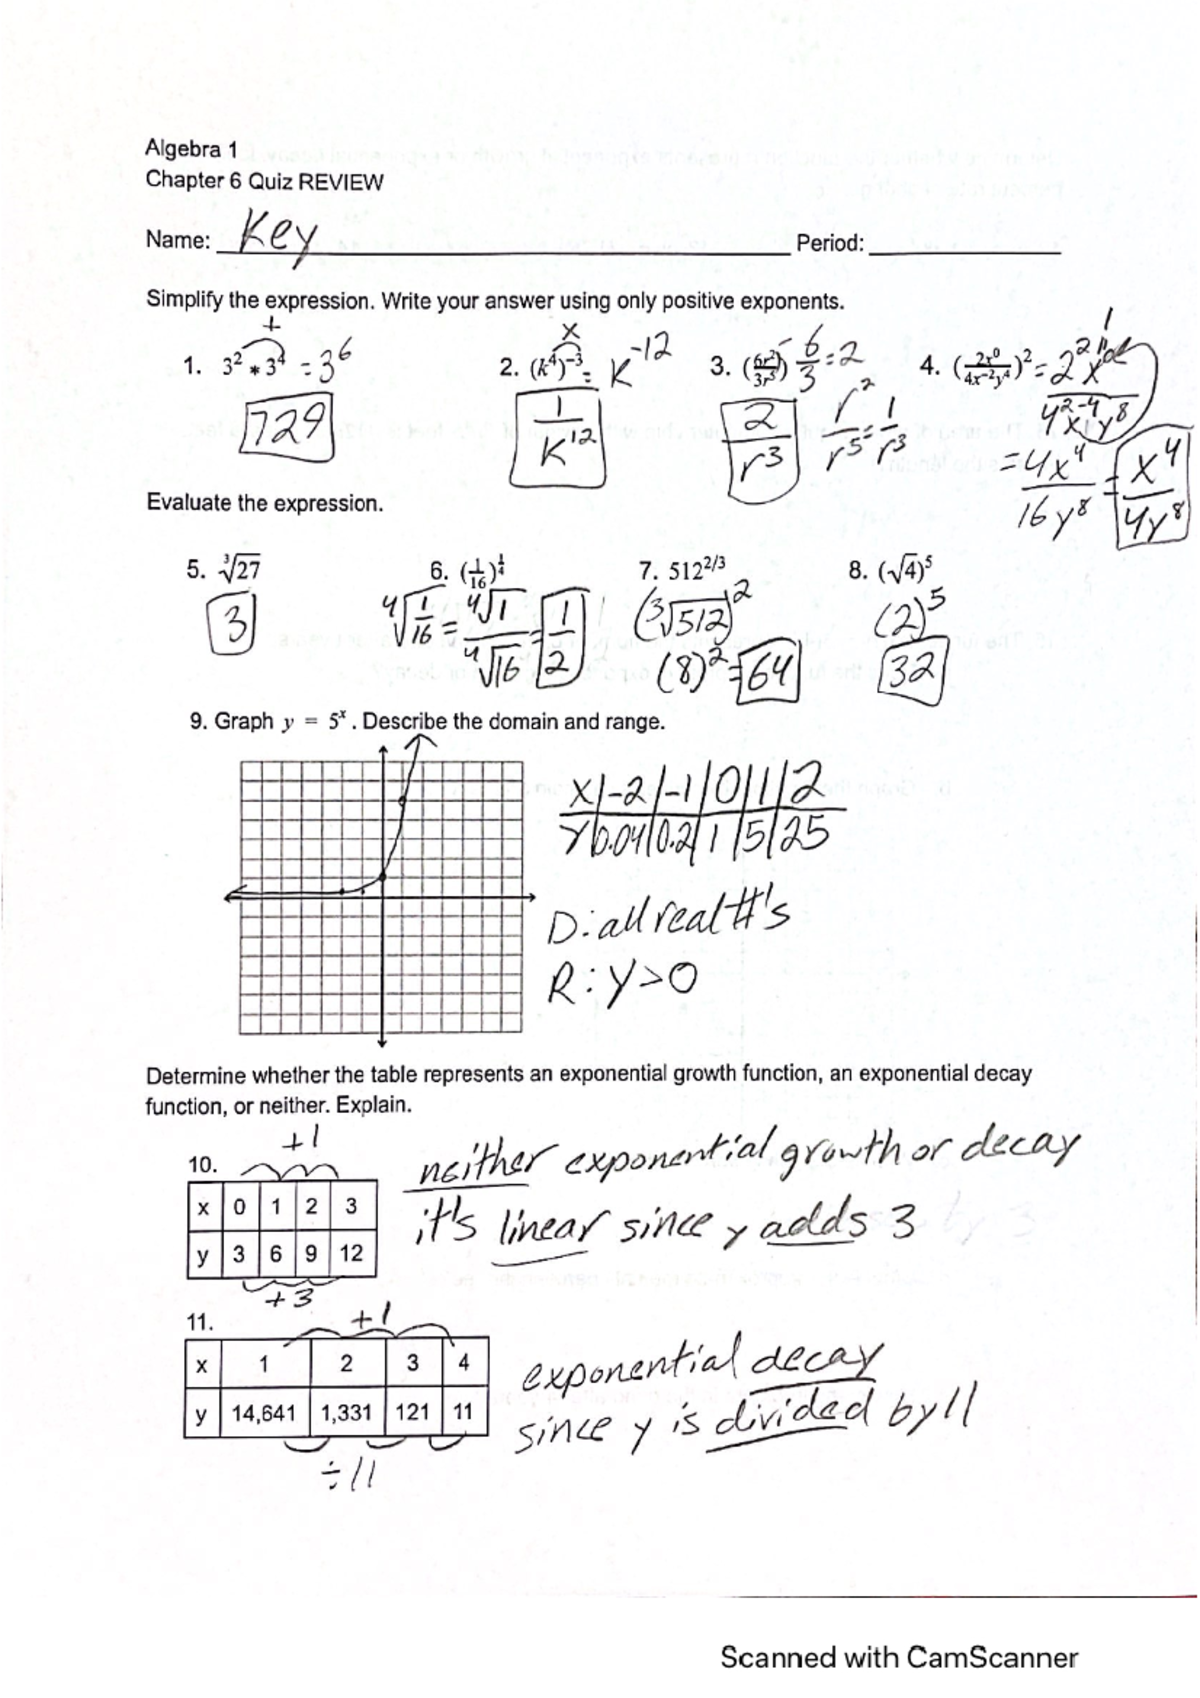 Algebra 1
Chapter 6 Quiz REVIEW
Name: Key Period:
Simplify the expression. Write your answer using only positive exponents.
+ x
1. 3² * 3⁴ = 3⁶ 2. (k⁴)⁻³ = K⁻¹² 3. (6r²/3r⁵) 6/3 = 2 4. (2x⁰/4x⁻²y⁴)² =
729 1/K¹² 2/r³ r²/r⁵ = 1/r³
= 4x⁴/16y⁸ = x⁴/4y⁸
Evaluate the expression.
5. ³√27 6. (1/16)^¼ 7. 512^2/3 8. (√4)⁵
3 ⁴√1/16 = ⁴√1/⁴√16 = 1/2 (³√512)² (2)⁵
(8)² = 64 32
9. Graph y = 5ˣ. Describe the domain and range.
X -2 -1 0 1 2
Y 0.04 0.2 1 5 25
D: all real #'s
R: Y>0
Determine whether the table represents an exponential growth function, an exponential decay
function, or neither. Explain.
+1
10. neither exponential growth or decay
x 0 1 2 3
it's linear since y adds 3
y 3 6 9 12
+3
11. +1
x 1 2 3 4
exponential decay
y 14,641 1,331 121 11
since y is divided by 11
÷11
Scanned with CamScanner